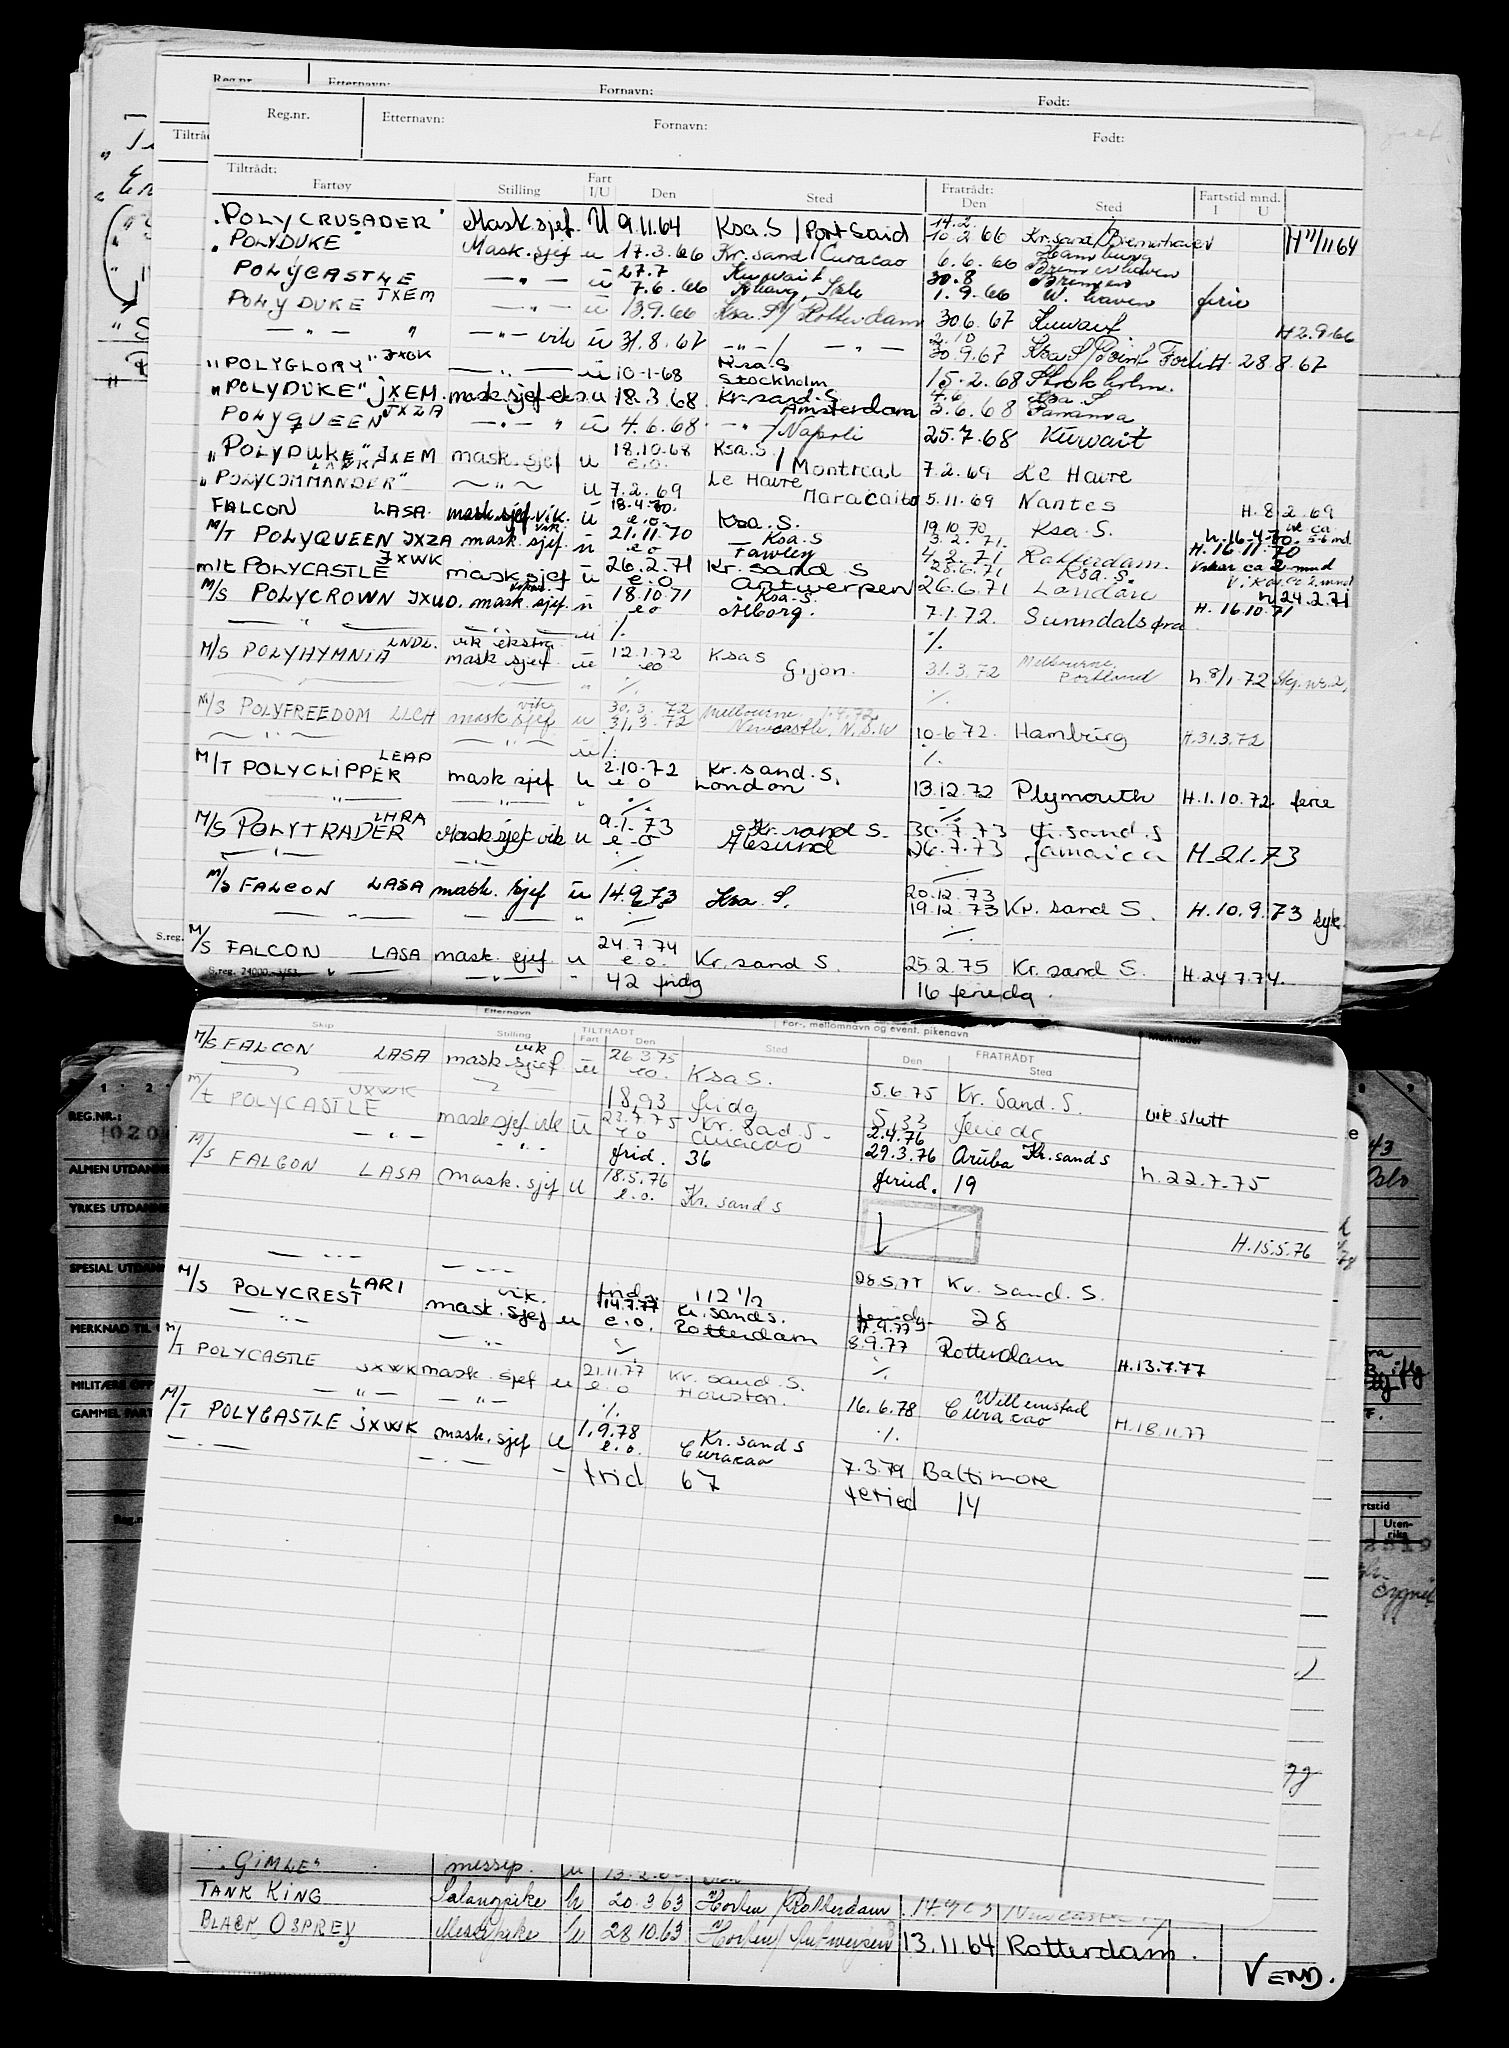 Reg.nr. Etternavn: Fornavn: Født:
Reg.nr. Etternavn: Fornavn: Født:
Tiltrådt: Fratrådt:
Fartøy Stilling Fart I/U Den Sted Den Sted Fartstid mnd. I U
"POLYCRUSADER" Mask.sjef. U 9.11.64 Ksa.S / Port Said 14.2. 10.2.66 Kr.sand / Bremerhaven H 11/11 64
"POLYDUKE" Mask.sjef u 17.3.66 Kr.sand / Curacao 6.6.66 Hamburg
POLYCASTLE — " — u 27.7 7.6.66 Kuwait 30.8 1.9.66 Bremen W. haven ferie
POLYDUKE JXEM — " — u 13.9.66 Ksa.S / Rotterdam 30.6.67 Kuwait H 2.9.66
— " — " — " — vik u 31.8.67 — " — / — " — 2.10 30.9.67 Ksa.S / Point Fortin H. 28.8.67
"POLYGLORY" JXOK — " — u 10-1-68 Ksa.S Stockholm 15.2.68 Stockholm.
"POLYDUKE" JXEM. mask.sjef eks. u 18.3.68. Kr.sand.S. Amsterdam 4.6 3.6.68 Ksa.S
POLYQUEEN JXZA — " — " u 4.6.68 — " — / Napoli 25.7.68 Kuwait
"POLYDUKE" JXEM mask.sjef u 18.10.68 e.o. Ksa.S. / Montreal 7.2.69 Le Havre
"POLYCOMMANDER" — " — u 7.2.69 Le Havre Maracaibo 5.11.69 Nantes H. 8.2.69
FALCON LASA. mask.sjef. vik. u 18.4.70. e.o. Ksa.S. 19.10.70 Ksa.S. h. 16.4.70. vik ca 5-6 md.
M/T POLYQUEEN JXZA mask.sjef. vik. u 21.11.70 e o Ksa.S Fawley 3.2.71. 4.2.71 Rotterdam. H. 16.11.70 Vikar ca 2 mnd
m/t POLYCASTLE JXWK mask sjef u 26.2.71 e.o Kr.sand S Antwerpen 28.6.71 26.6.71 Ksa.S. London h 24.2.71
M/S POLYCROWN JXUO. mask.sjef. u 18.10.71 e o Ksa.S. Ålborg. 7.1.72. Sunndalsøra H. 16.10.71
— " — vik ekstra u ./. ./.
M/S POLYHYMNIA LNDL. mask sjef u 12.1.72 eo Ksa S Gijon. 31.3.72 Melbourne, Portland h. 8/1.72
" ./. ./.
M/S POLYFREEDOM LLCH mask sjef vik u 30.3.72 31.3.72 Melbourne 1.4.72 Newcastle, N.S.W 10.6.72. Hamburg H.31.3.72
— " — — " — u ./. ./.
M/T POLYCLIPPER LEAP mask sjef u 2.10.72 e o Kr.sand.S. London 13.12.72 Plymouth H.1.10.72. ferie
" " " ./. ./.
M/S POLYTRADER LHRA Mask sjef vik u 9.1.73 e-o Kr.sand S. Ålesund 30.7.73 26.7.73 Kr.sand.S Jamaica H.2.1.73
— " — — " — ./.
M/S FALCON LASA mask. sjef u 14.9.73 Ksa.S. 20.12.73 19.12.73 Kr. sand S. H.10.9.73
— " — — " — " ./. ./.
M/S FALCON LASA mask. sjef u 24.7.74 e.o. Kr.sand S. 25.2.75 Kr. sand S. H.24.7.74.
S.reg. 24000. " — " — " 42 fridg 16 feriedg.
S.reg.
Etternavn For-, mellomnavn og event. pikenavn
Skip Stilling TILTRÅDT Fart Den Sted FRATRÅDT Den Sted
M/S FALCON LASA mask.sjef vik u 26.3.75 eo. Ksa S. 5.6.75 Kr. Sand.S. vik.slutt
18,93 fridg 5,33
M/t POLYCASTLE JXWK mask sjef vik u 23.7.75 e o Kr. Sand.S- Curacao 2.4.76 29.3.76 Aruba Kr.sand s h.22.7.75
— " — " frid. 36 feried. 19
M/S FALCON LASA mask. sjef u 18.5.76 e.o. Kr. sand s H.15.5.76
28.5.77 Kr. sand. S.
— " — — " — frid. 112 1/2 28
M/S POLYCREST LARI mask.sjef vik. u 14.7.77 e.o. Kr.sand s. Rotterdam 8.9.77 Rotterdam H.13.7.77
— " — — " — ./. ./.
M/T POLYCASTLE JXWK mask. sjef u 21.11.77 e.o Kr. sand.S. Houston. 16.6.78 Willemstad Curacao H.18.11.77
— " — — " — ./. ./.
M/T POLYCASTLE JXWK mask. sjef u 1.9.78 e.o. Kr. sand s Curacao 7.3.79 Baltimore
— " — — " — " frid 67 feried 14
REG.NR.:
ALMEN UTDANN
YRKES UTDANN
SPESIAL UTDANN
MERKNAD TIL
MILITÆRE OPP
GAMMEL FART
Oslo
Uten-riks
"GIMLE" messep. u
TANK KING Salongpike u 20.3.63 Horten / Rotterdam
BLACK OSPREY Messepike u 28.10.63 Horten / Antwerpen 13.11.64 Rotterdam.
VEND.